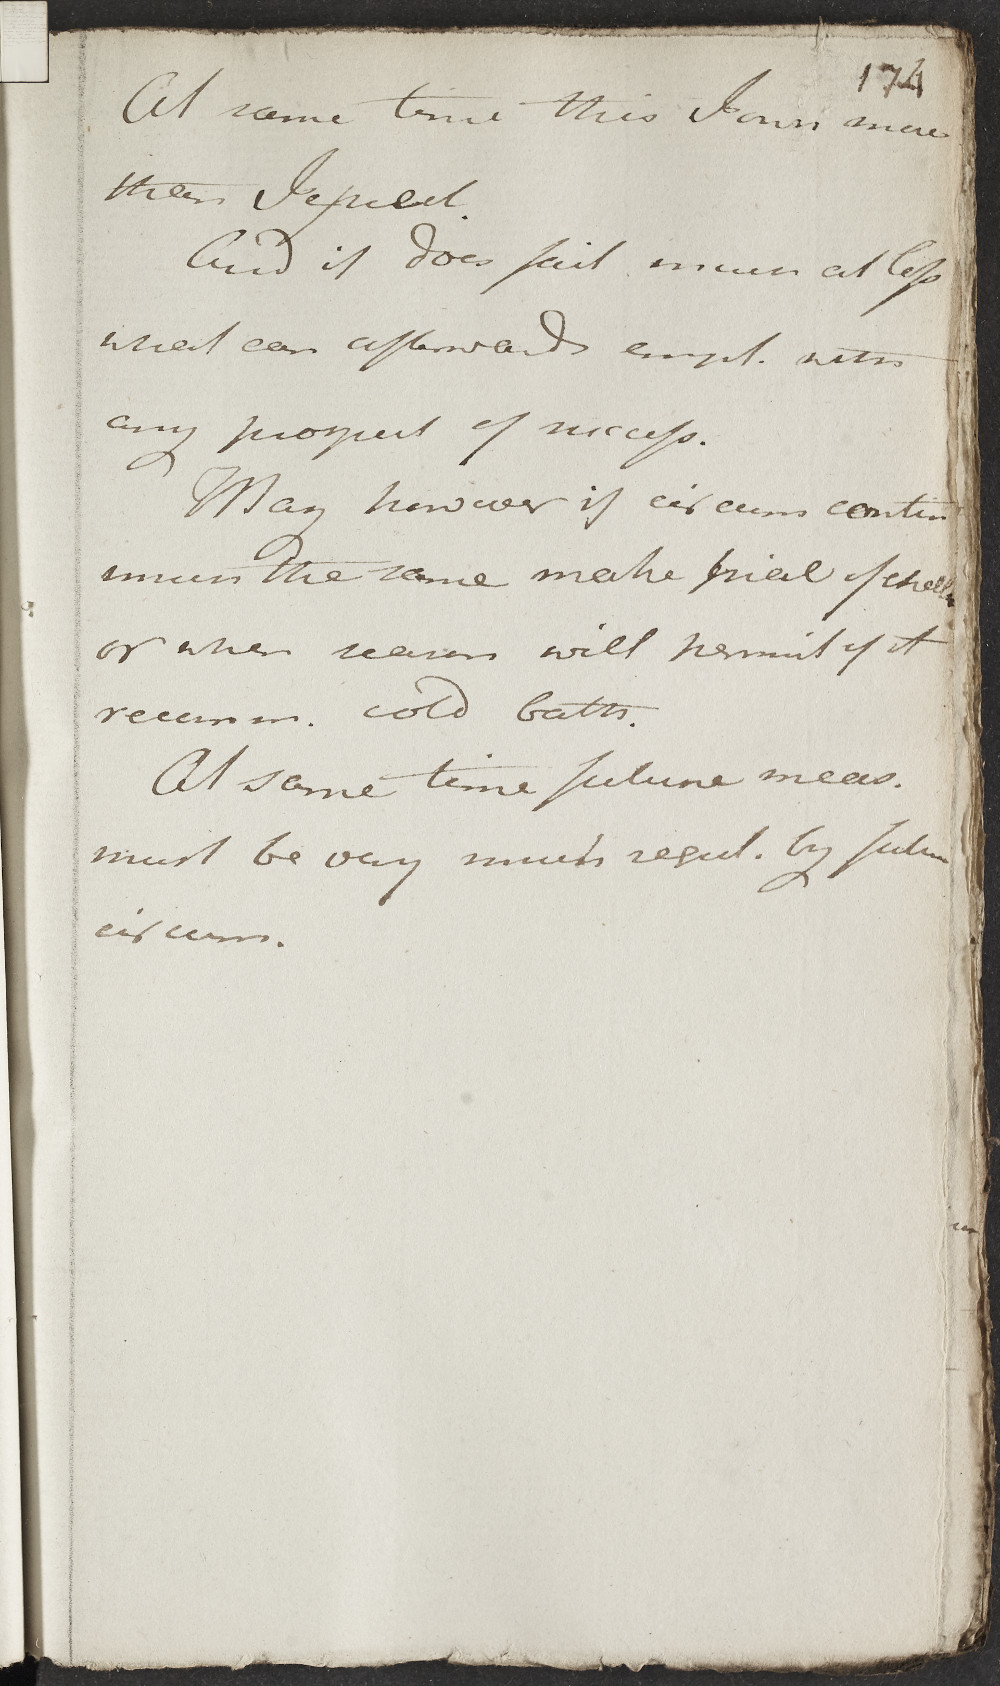 174
At same time this I own more
than I expect.
And if does fail much at loss
what can afterwards empl. with
any prospect of success.
May however if circum contin
much the same make trial of
or when season will permit of it
recomm. cold bath.
At same time future meas.
must be very much regul. by futur
circum.